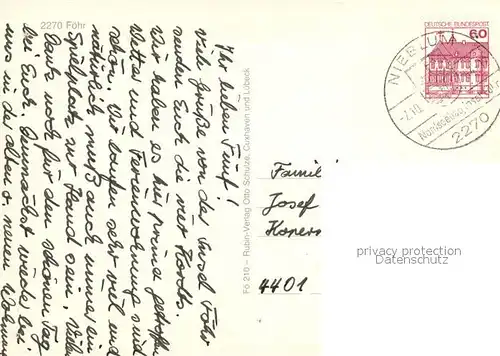 2270 Föhr
Ihr lieben Fünf!
Viele Grüße von der Insel Föhr
senden Euch die vier
Wir haben es hier prima getroffen
Wetter und Ferienwohnung sind
schön. Wir laufen sehr viel und
natürlich muß auch immer ein
Spielplatz zur Hand sein. Vielen
Dank noch für den schönen Tag
bei Euch. Demnächst wieder bei
uns in der alten o. neuen Wohnung
Fö 210 – Rubin-Verlag Otto Schulze, Cuxhaven und Lübeck
DEUTSCHE BUNDESPOST
60
NIEBLUM
2270
Famil
Josef
Kopern
4401
privacy protection
Datenschutz